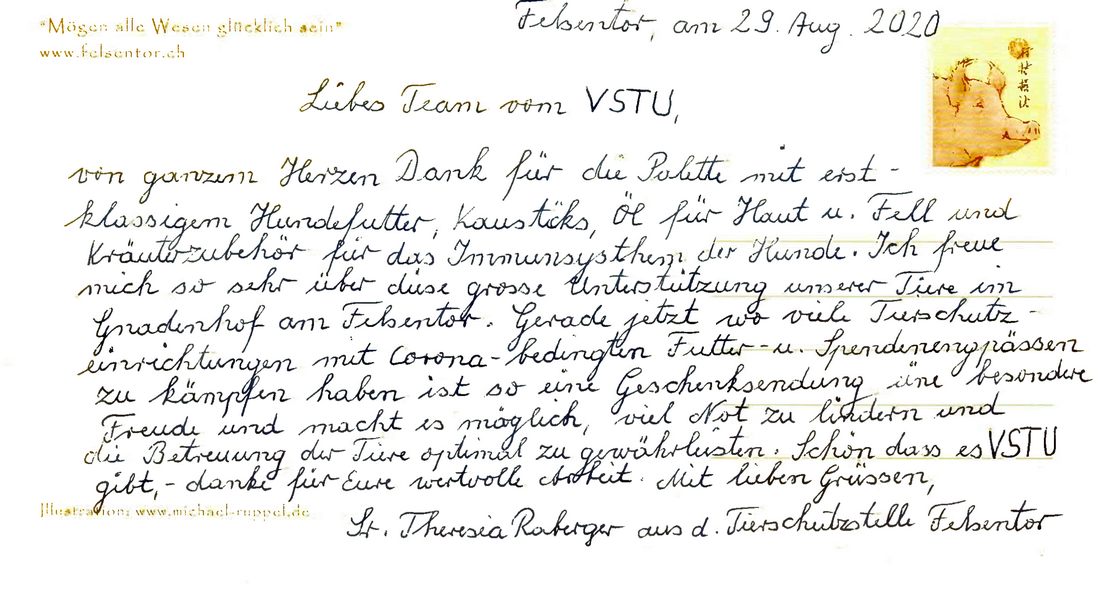 "Mögen alle Wesen glücklich sein"
www.felsentor.ch
Felsentor, am 29. Aug. 2020
Liebes Team vom VSTU,
von ganzem Herzen Dank für die Palette mit erst-
klassigem Hundefutter, Kaustiks, Öl für Haut u. Fell und
Kräuterzubehör für das Immunsysthem der Hunde. Ich freue
mich so sehr über diese grosse Unterstützung unserer Tiere im
Gnadenhof am Felsentor. Gerade jetzt wo viele Tierschutz-
einrichtungen mit Corona-bedingten Futter- u. Spendenengpässen
zu kämpfen haben ist so eine Geschenksendung eine besondere
Freude und macht es möglich, viel Not zu lindern und
die Betreuung der Tiere optimal zu gewährleisten. Schön dass es VSTU
gibt,- danke für Eure wertvolle Arbeit. Mit lieben Grüssen,
Illustration: www.michael-ruppel.de
Sr. Theresia Raberger aus d. Tierschutzstelle Felsentor